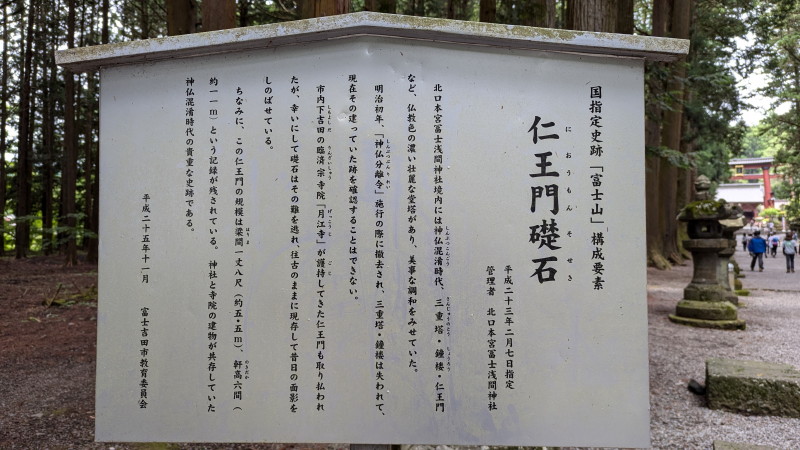 国指定史跡「富士山」構成要素
におうもんそせき
仁王門礎石
平成二十三年二月七日指定
管理者 北口本宮冨士浅間神社
北口本宮冨士浅間神社境内には神仏混淆時代、三重塔・鐘楼・仁王門
など、仏教色の濃い壮麗な堂塔があり、美事な調和をみせていた。
明治初年、「神仏分離令」施行の際に撤去され、三重塔・鐘楼は失われて、
現在その建っていた跡を確認することはできない。
市内下吉田の臨済宗寺院『月江寺』が護持してきた仁王門も取り払われ
たが、幸いにして礎石はその難を逃れ、往古のままに現存して昔日の面影を
しのばせている。
ちなみに、この仁王門の規模は梁間一丈八尺（約五・五ｍ）、軒高六間（
約一一ｍ）という記録が残されている。神社と寺院の建物が共存していた
神仏混淆時代の貴重な史跡である。
平成二十五年十一月 富士吉田市教育委員会